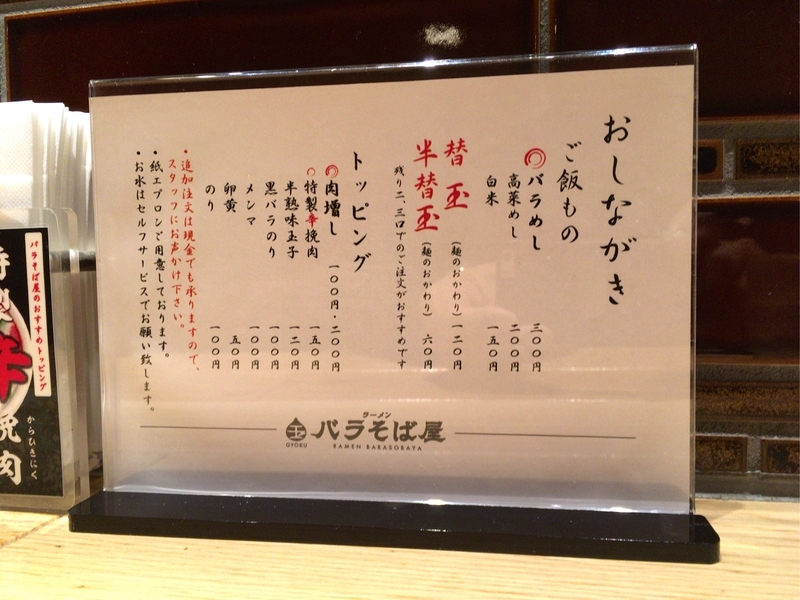 おしながき
ご飯もの
バラめし 三〇〇円
高菜めし 二〇〇円
白米 一五〇円
替玉(麺のおかわり) 一二〇円
半替玉(麺のおかわり) 六〇円
残り二、三口でのご注文がおすすめです
トッピング
肉増し 一〇〇円・二〇〇円
特製辛挽肉 一五〇円
半熟味玉子 一二〇円
黒バラのり 一〇〇円
メンマ 一〇〇円
卵黄 五〇円
のり 一〇〇円
・追加注文は現金でも承りますので、
スタッフにお声かけ下さい。
・紙エプロンご用意しております。
・お水はセルフサービスでお願い致します。
玉
GYOKU
ラーメン
バラそば屋
RAMEN BARASOBAYA
バラそば屋のおすすめトッピング
辛
挽肉
からひきにく